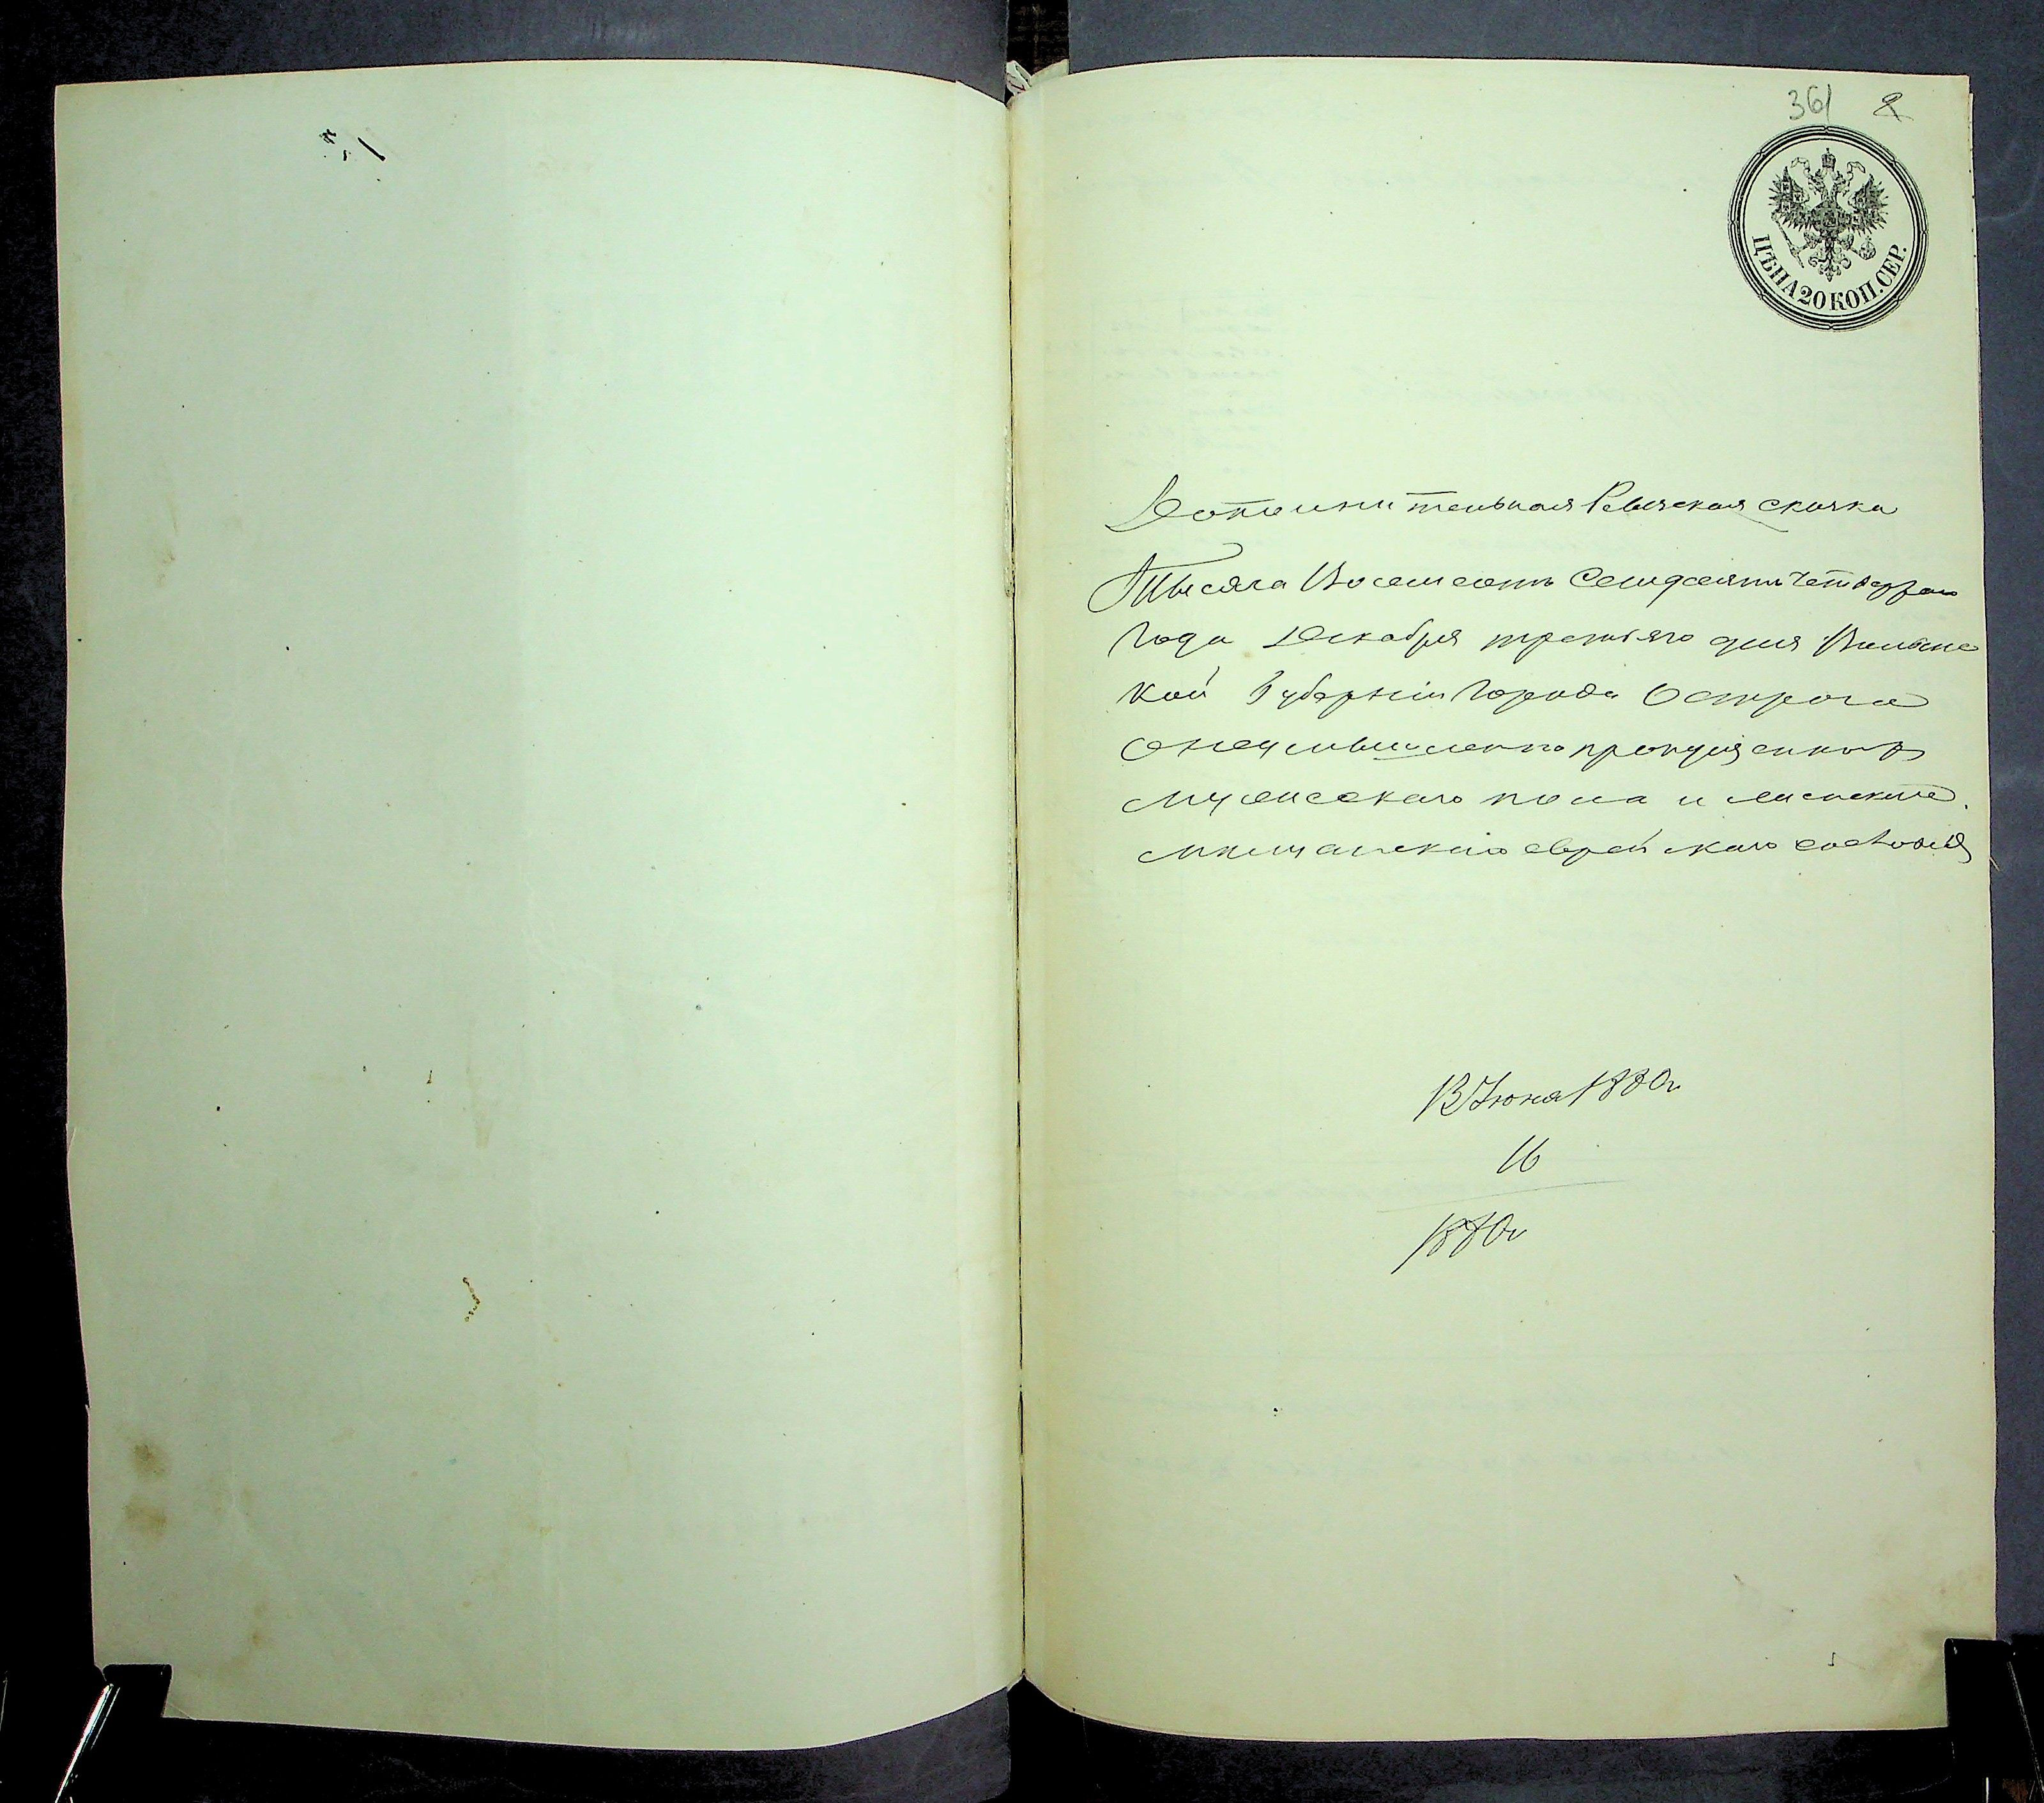 361 2
ЦѢНА 20 КОП. СЕР.
Дополнительная Ревизская сказка
Тысяча Восемсотъ Семдесятъ Четвертаго
Года Декабря третьяго дня Волынс
кой Губерніи Города Острога
О неумышленно пропущенныхъ
мужескаго пола и женскаго
мѣщанскаго еврейскаго сословія
13 Іюня 1880 г
16
1880 г